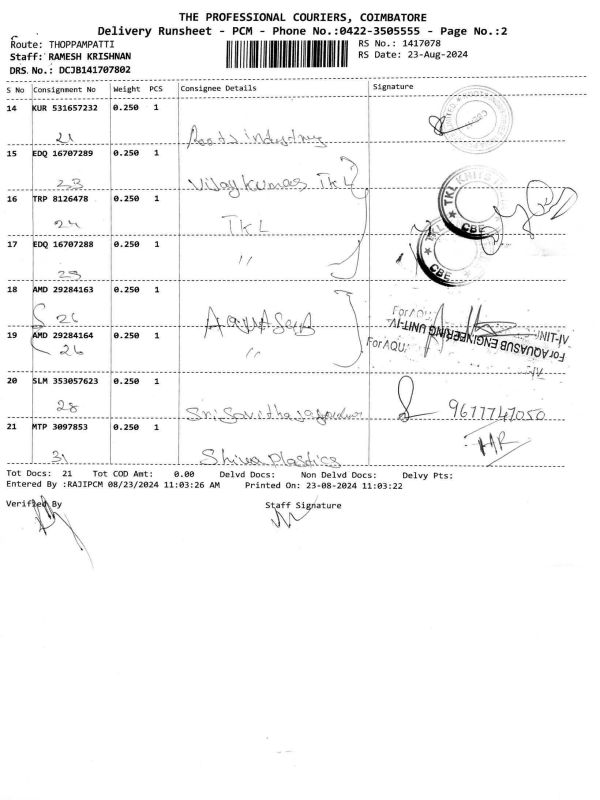 THE PROFESSIONAL COURIERS, COIMBATORE
Delivery Runsheet - PCM - Phone No.:0422-3505555 - Page No.:2
Route: THOPPAMPATTI RS No.: 1417078
Staff: RAMESH KRISHNAN RS Date: 23-Aug-2024
DRS No.: DCJB141707802
S No Consignment No Weight PCS Consignee Details Signature
14 KUR 531657232 0.250 1
21
15 EDQ 16707289 0.250 1
23 Vijay Kumar TKL
16 TRP 8126478 0.250 1
24 TKL
17 EDQ 16707288 0.250 1
25 "
18 AMD 29284163 0.250 1
26 Aquasub
19 AMD 29284164 0.250 1
26 "
For AQUASUB ENGINEERING UNIT-IV
20 SLM 353057623 0.250 1
28 9677747050
21 MTP 3097853 0.250 1
31 Shiva Plastics
Tot Docs: 21 Tot COD Amt: 0.00 Delvd Docs: Non Delvd Docs: Delvy Pts:
Entered By :RAJIPCM 08/23/2024 11:03:26 AM Printed On: 23-08-2024 11:03:22
Verified By Staff Signature